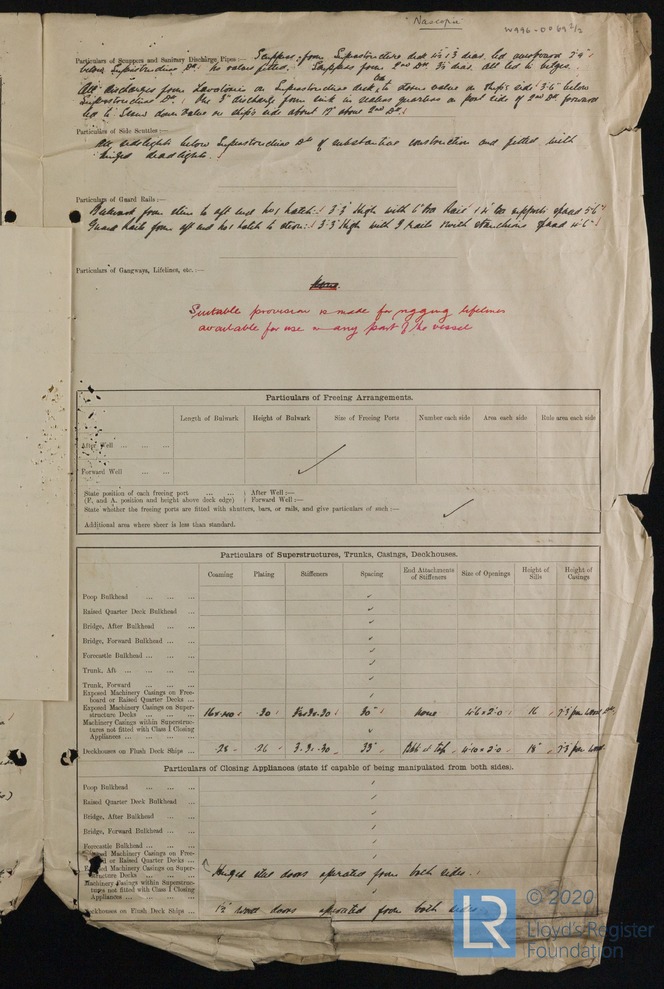 "Nascopie"
W996-0069 2/2
Particulars of Scuppers and Sanitary Discharge Pipes :— Scuppers from Superstructure deck dias. led overboard
below Superstructure Dk. No valves fitted. Scuppers from 2nd Dk dias. All led to bilges.
All discharges from Lavatories on Superstructure deck, to down valve on ship's side 3'6" below
Superstructure Dk. One 3" discharge from sink in quarters on port side of 2nd Dk forward
led to down valve on ship's side about above 2nd Dk.
Particulars of Side Scuttles :—
All sidelights below Superstructure Dk of substantial construction and fitted with
hinged deadlights
Particulars of Guard Rails :—
Bulwark from stem to aft end No 1 hatch 3'3" High with 6" Rail supports spaced 5'6"
Guard rails from aft end No 1 hatch to stern 3'3" High with 3 rails with stanchions spaced 4'6"
Particulars of Gangways, Lifelines, etc. :—
None
Suitable provision is made for rigging lifelines
available for use in any part of the vessel
Particulars of Freeing Arrangements.
Length of Bulwark Height of Bulwark Size of Freeing Ports Number each side Area each side Rule area each side
After Well ... ... ...
Forward Well ... ...
State position of each freeing port ... ... ... After Well :—
(F. and A. position and height above deck edge) Forward Well :—
State whether the freeing ports are fitted with shutters, bars, or rails, and give particulars of such :—
Additional area where sheer is less than standard.
Particulars of Superstructures, Trunks, Casings, Deckhouses.
Coaming Plating Stiffeners Spacing End Attachments of Stiffeners Size of Openings Height of Sills Height of Casings
Poop Bulkhead ... ... ...
Raised Quarter Deck Bulkhead ...
Bridge, After Bulkhead ... ...
Bridge, Forward Bulkhead ... ...
Forecastle Bulkhead ... ... ...
Trunk, Aft ... ... ...
Trunk, Forward ... ... ...
Exposed Machinery Casings on Free-
board or Raised Quarter Decks ...
Exposed Machinery Casings on Super-
structure Decks ... ... ... .30 30" None 4'6x2'0 16 7'3 from wood Dk.
Machinery Casings within Superstruc-
tures not fitted with Class I Closing
Appliances ... ... ...
Deckhouses on Flush Deck Ships ... .28 .26 3.3.30 at top 4'10x2'0 18" 7'3 from wood
Particulars of Closing Appliances (state if capable of being manipulated from both sides).
Poop Bulkhead ... ... ...
Raised Quarter Deck Bulkhead ...
Bridge, After Bulkhead ... ...
Bridge, Forward Bulkhead ... ...
Forecastle Bulkhead ... ... ...
Machinery Casings on Free-
or Raised Quarter Decks ...
Machinery Casings on Super-
structure Decks ... ... ... Hinged steel doors operated from both sides.
Machinery Casings within Superstruc-
tures not fitted with Class I Closing
Appliances ... ... ...
Deckhouses on Flush Deck Ships ... doors operated from both sides
LR
© 2020
Lloyd's Register
Foundation